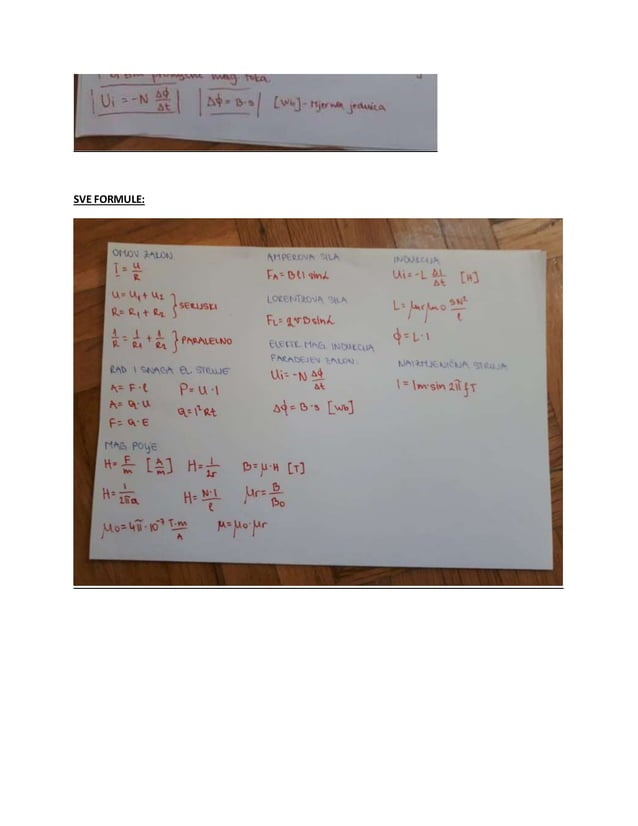 mag. toka
Ui = -N Δϕ/Δt | Δϕ = B·s | [Wb] - Mjerna jedinica
SVE FORMULE:
OMOV ZAKON
I = U/R
U = U1 + U2
R = R1 + R2 } SERIJSKI
1/R = 1/R1 + 1/R2 } PARALELNO
RAD I SNAGA EL. STRUJE
A = F·l P = U·I
A = Q·U Q = I²Rt
F = Q·E
MAG. POLJE
H = F/m [A/m] H = I/2r B = μ·H [T]
H = I/2πa H = N·I/l μr = B/B0
μ0 = 4π·10⁻⁷ T·m/A μ = μ0·μr
AMPEROVA SILA
FA = B l I sinα
LORENTZOVA SILA
FL = q v B sinα
ELEKTR. MAG. INDUKCIJA
FARADEJEV ZAKON:
Ui = -N Δϕ/Δt
Δϕ = B·s [Wb]
INDUKCIJA
Ui = -L ΔI/Δt [H]
L = μr μ0 SN²/l
ϕ = L·I
NAIZMJENIČNA STRUJA
I = Im·sin 2π f T